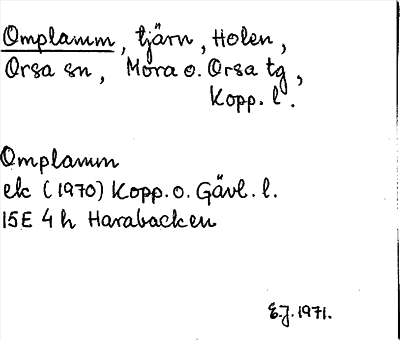 Omplamm, tjärn, Holen,
Orsa sn, Mora o. Orsa tg,
Kopp. l.
Omplamm
ek (1970) Kopp. o. Gävl. l.
15E 4 h Harabacken
E.J. 1971.